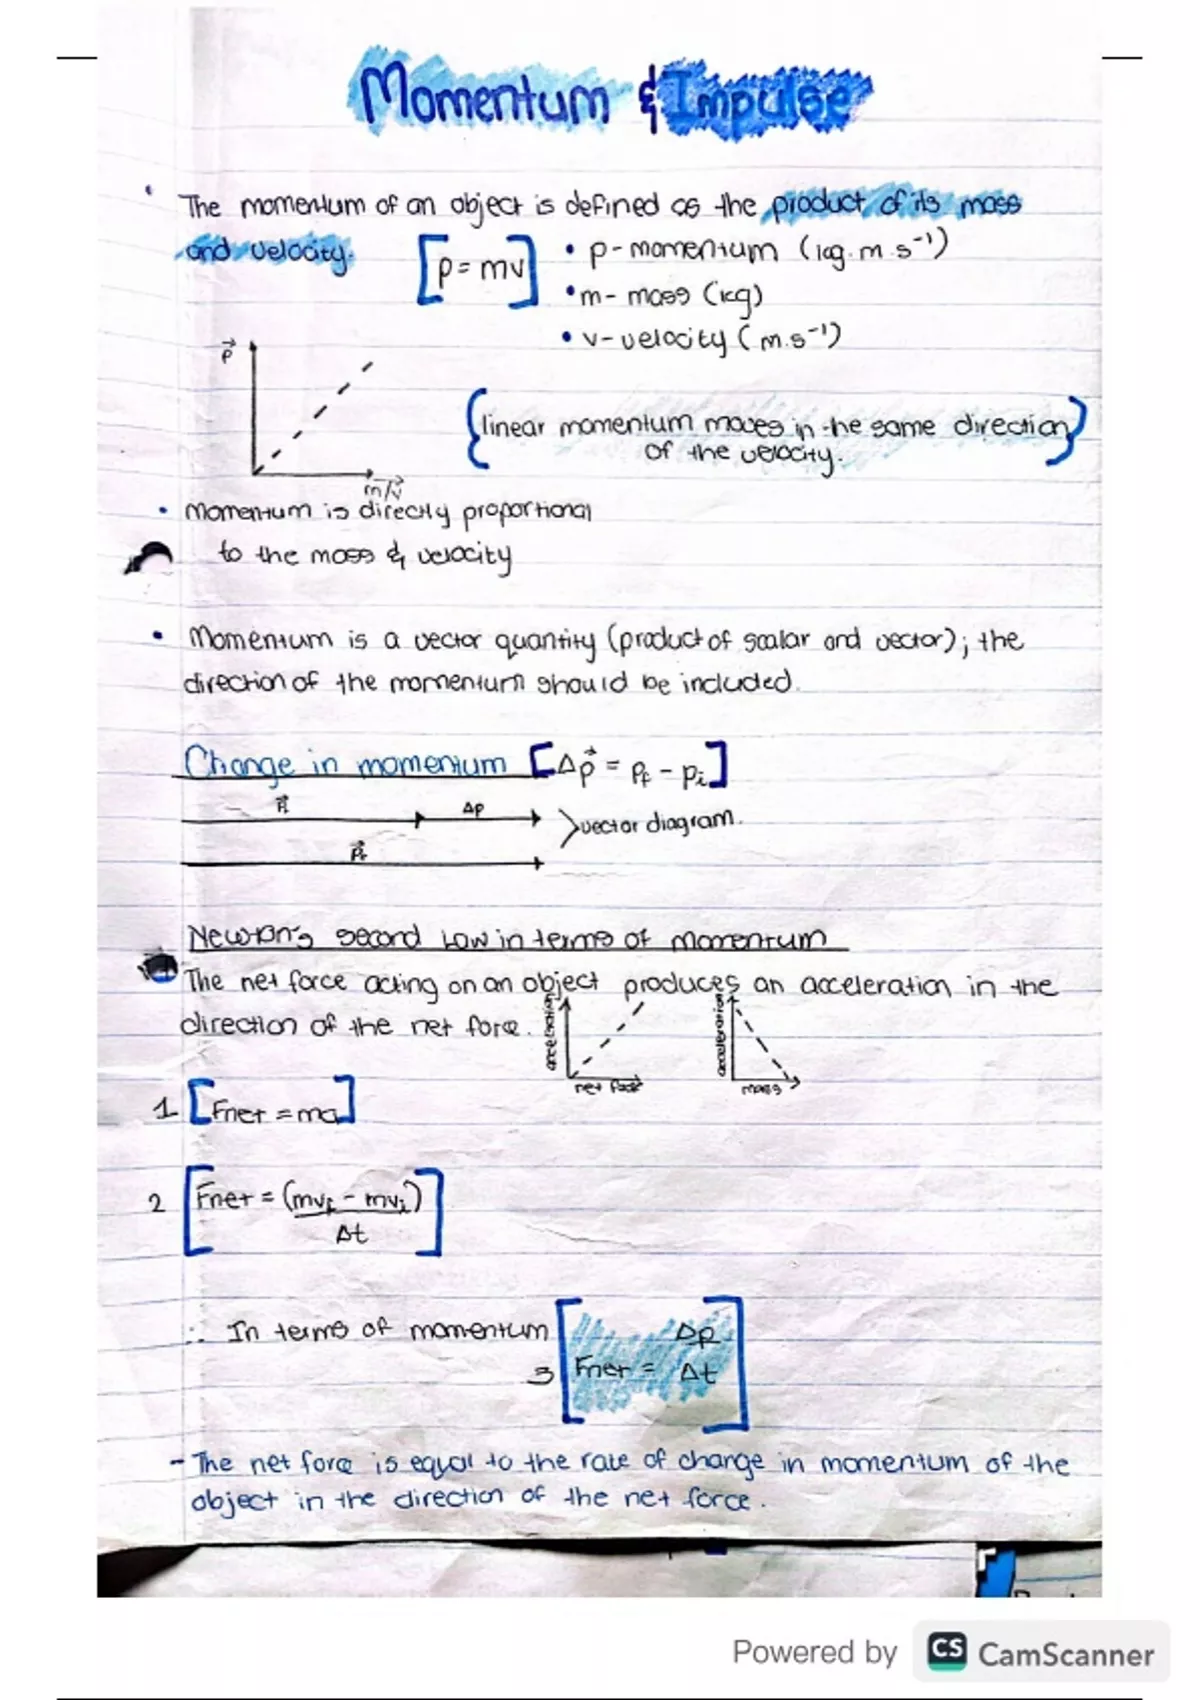 Momentum & Impulse
• The momentum of an object is defined as the product of its mass
and velocity. [p = mv] • p - momentum (kg.m.s⁻¹)
• m - mass (kg)
• v - velocity (m.s⁻¹)
p⃗
{linear momentum moves in the same direction
of the velocity.}
m/v⃗
• Momentum is directly proportional
to the mass & velocity
• Momentum is a vector quantity (product of scalar and vector); the
direction of the momentum should be included.
Change in momentum [Δp⃗ = pf - pi]
Δp
>vector diagram.
Newton's second Law in terms of momentum
The net force acting on an object produces an acceleration in the
direction of the net force.
acceleration
net force
acceleration
mass
1 [Fnet = ma]
2 [Fnet = (mvf - mvi)
Δt]
∴ In terms of momentum
3 [Fnet = Δp
Δt]
- The net force is equal to the rate of change in momentum of the
object in the direction of the net force.
Powered by CS CamScanner